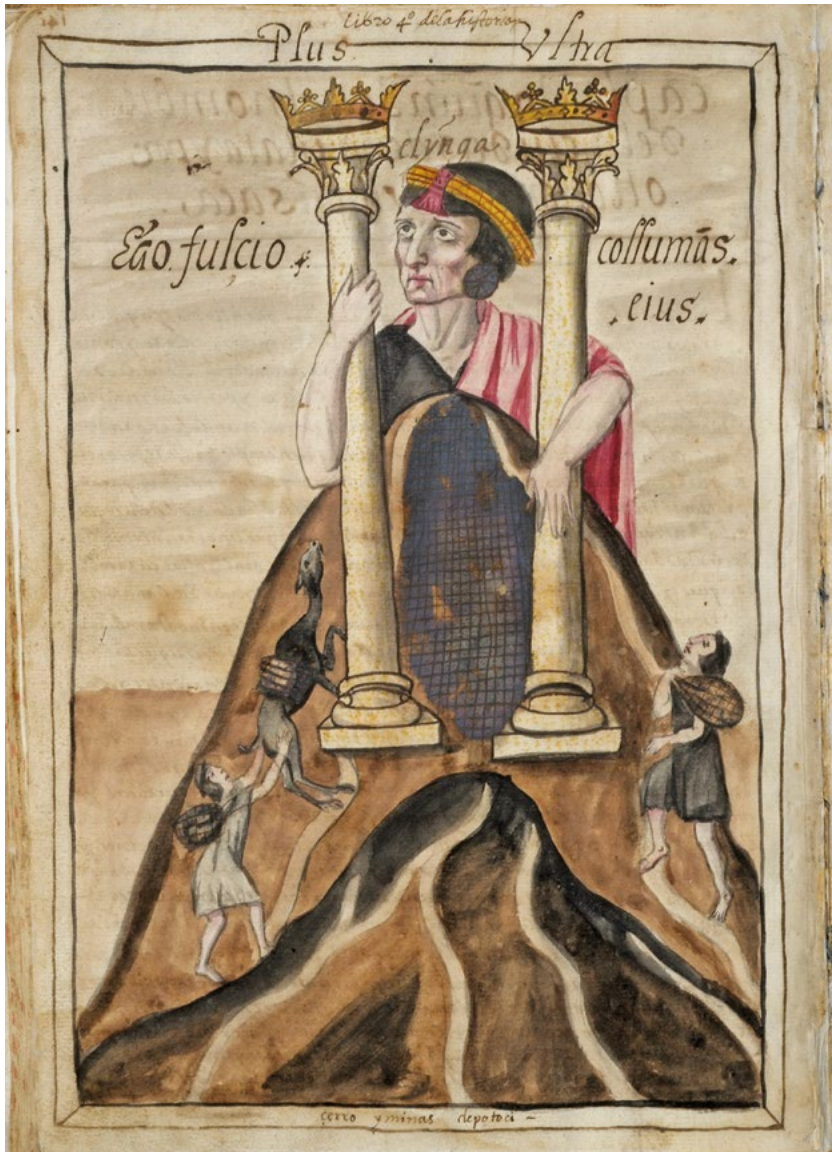 Libro 4º de la historia
Plus Vltra
elynga
Ego. fulcio. collumās.
eius.
cerro y minas de potoci